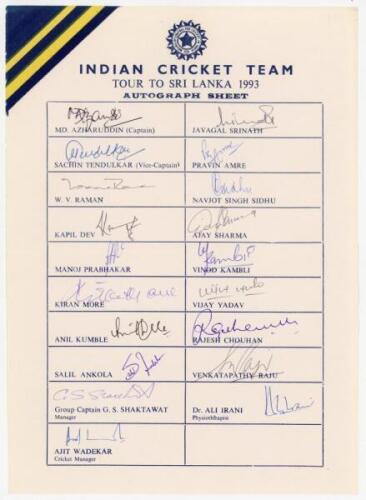 INDIAN CRICKET TEAM
TOUR TO SRI LANKA 1993
AUTOGRAPH SHEET
MD. AZHARUDDIN (Captain)
JAVAGAL SRINATH
SACHIN TENDULKAR (Vice-Captain)
PRAVIN AMRE
W. V. RAMAN
NAVJOT SINGH SIDHU
KAPIL DEV
AJAY SHARMA
MANOJ PRABHAKAR
VINOD KAMBLI
KIRAN MORE
VIJAY YADAV
ANIL KUMBLE
RAJESH CHOUHAN
SALIL ANKOLA
VENKATAPATHY RAJU
Group Captain G. S. SHAKTAWAT
Manager
Dr. ALI IRANI
Physiotherapist
AJIT WADEKAR
Cricket Manager